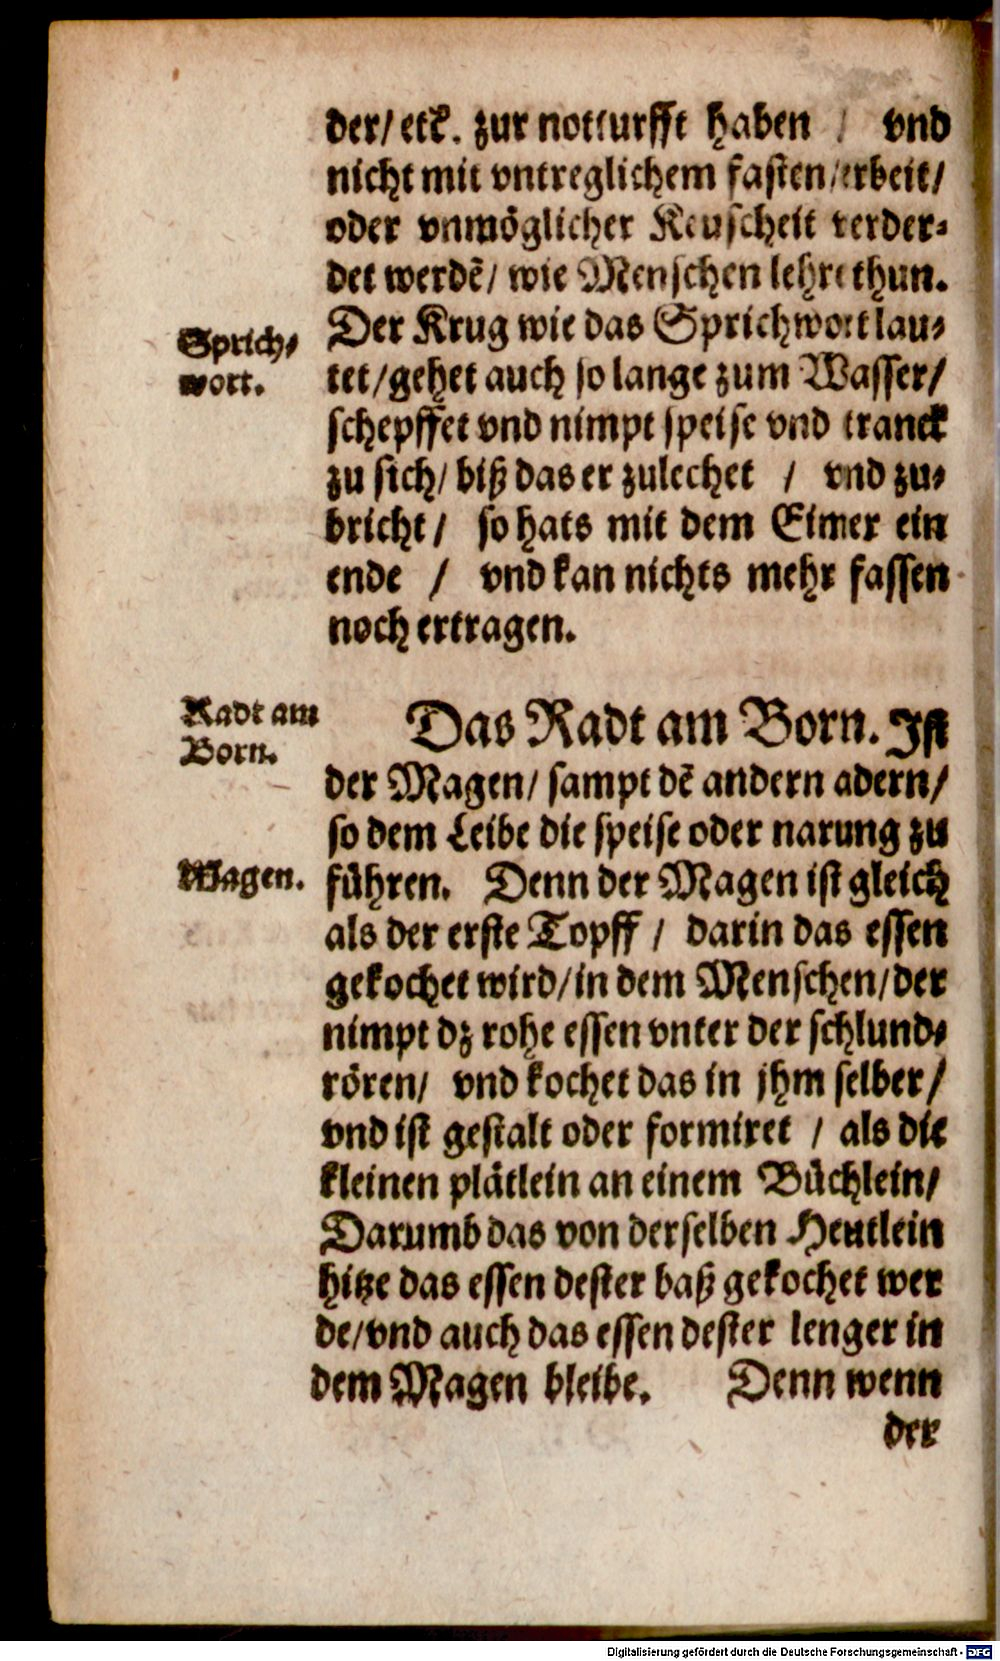 der/ etč. zur notturfft haben / vnd
nicht mit vntreglichem fasten/erbeit/
oder vnmöglicher Keuscheit verder-
bet werdẽ/ wie Menschen lehre thun.
Der Krug wie das Sprichwort lau-
tet/gehet auch so lange zum Wasser/
schepffet vnd nimpt speise vnd tranck
zu sich/ biß das er zulechet / vnd zu-
bricht/ so hats mit dem Eimer ein
ende / vnd kan nichts mehr fassen
noch ertragen.
Sprich-
wort.
Das Radt am Born. Ist
der Magen/ sampt dẽ andern adern/
so dem Leibe die speise oder narung zu
führen. Denn der Magen ist gleich
als der erste Topff / darin das essen
gekochet wird/in dem Menschen/der
nimpt dz rohe essen vnter der schlund-
rören/ vnd kochet das in jhm selber/
vnd ist gestalt oder formiret / als die
kleinen plätlein an einem Büchlein/
Darumb das von derselben Heutlein
hitze das essen dester baß gekochet wer
de/vnd auch das essen dester lenger in
dem Magen bleibe. Denn wenn
der
Radt am
Born.
Magen.
Digitalisierung gefördert durch die Deutsche Forschungsgemeinschaft - DFG